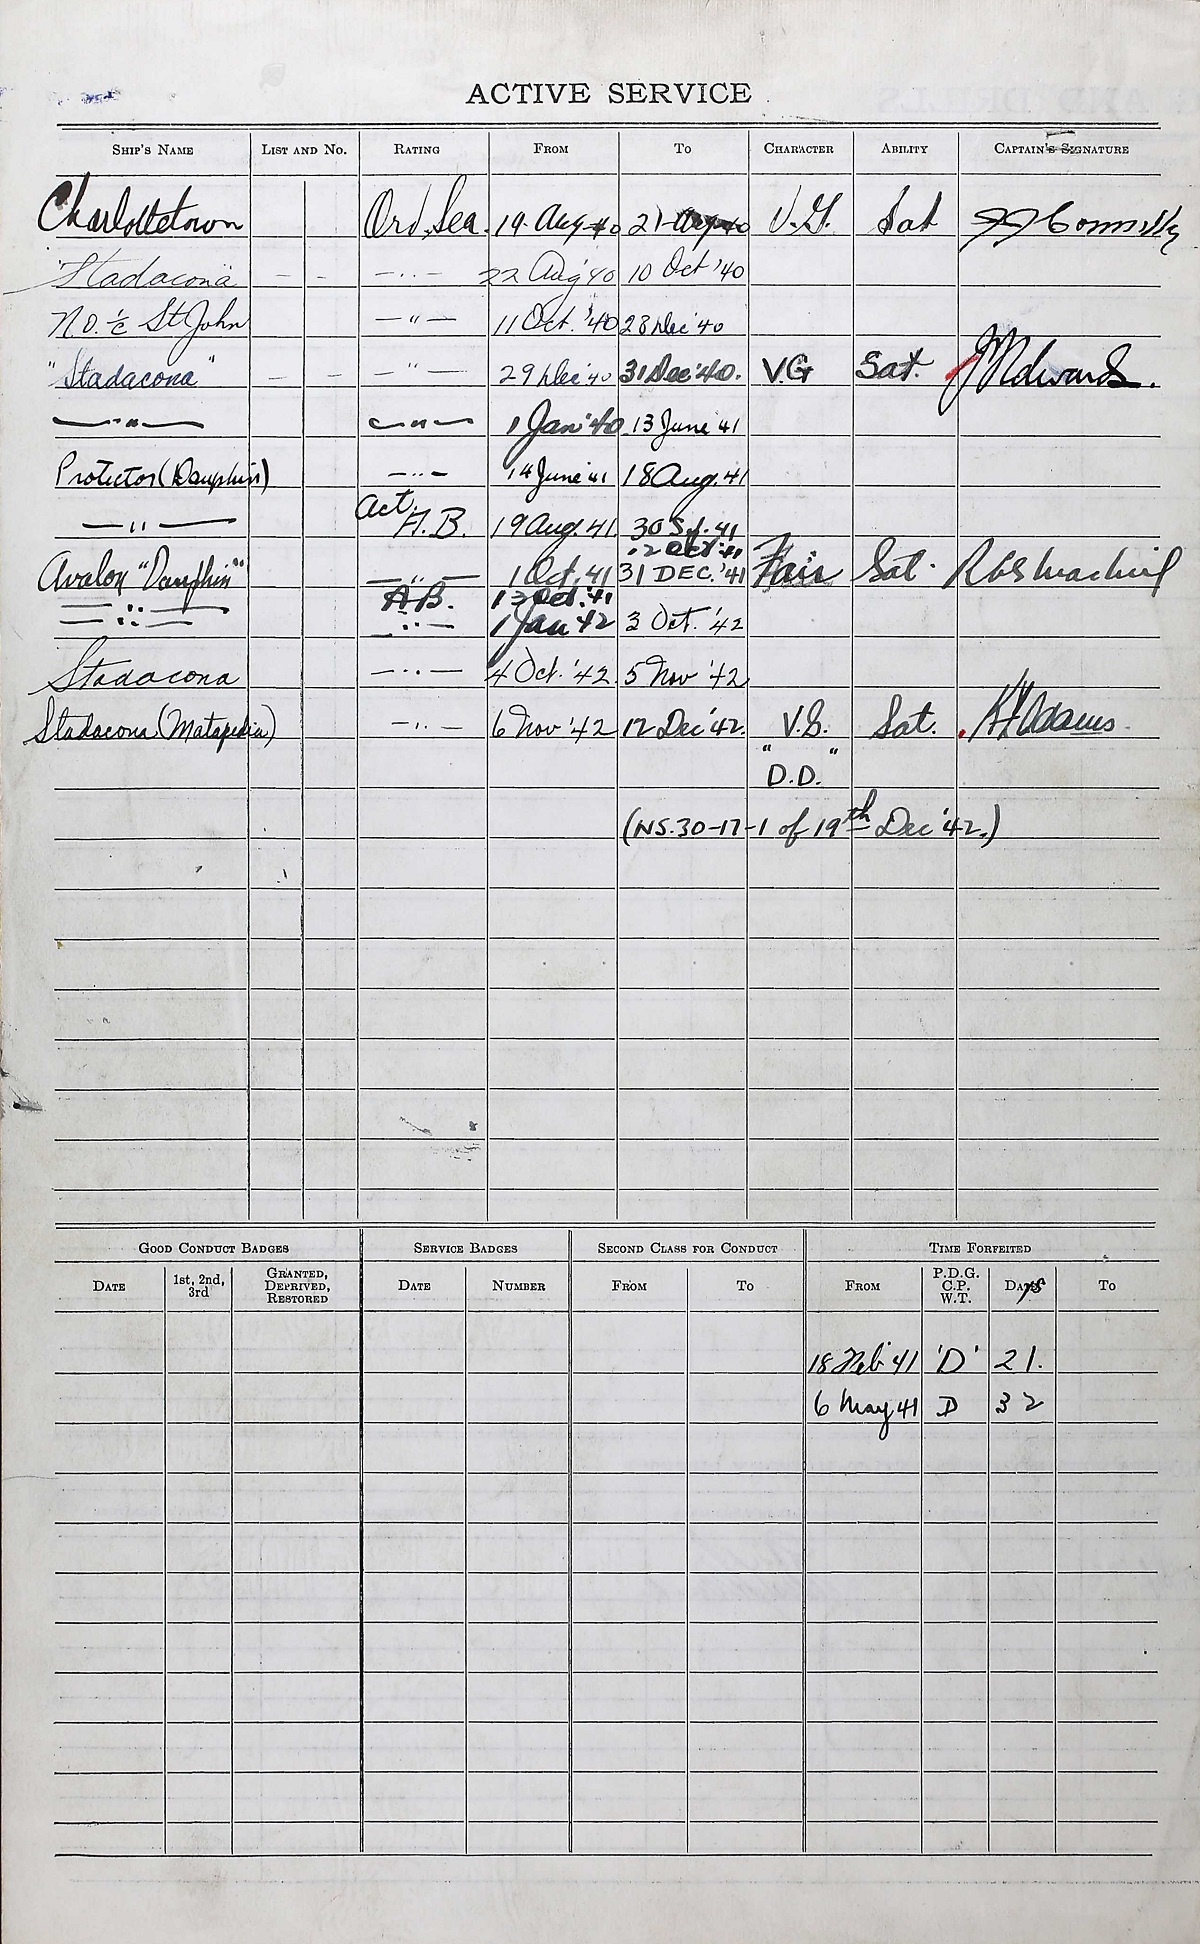 ACTIVE SERVICE
SHIP'S NAME LIST AND NO. RATING FROM TO CHARACTER ABILITY CAPTAIN'S SIGNATURE
Charlottetown Ord. Sea. 19 Aug 40 21 Aug 40 V.G. Sat
Stadacona - - -"- 22 Aug '40 10 Oct '40
N.O. i/c St John -"- 11 Oct. '40 28 Dec '40
"Stadacona" - - -"- 29 Dec '40 31 Dec '40. VG Sat. Edwards.
-"- -"- 1 Jan '40 13 June '41
Protector (Dauphin) -"- 14 June '41 18 Aug. 41
-"- Act. A.B. 19 Aug. 41 30 Sp. 41
12 Oct. 41
Avalon "Dauphin" -"- 1 Oct. 41 31 DEC. '41 Fair Sat.
-"- A.B. 13 Oct. '41
-"- -"- 1 Jan '42 3 Oct. '42
Stadacona -"- 4 Oct. '42 5 Nov '42
Stadacona (Matapedia) -"- 6 Nov '42 12 Dec '42. V.G. Sat. Adams
"D.D."
(NS. 30-17-1 of 19th Dec '42.)
GOOD CONDUCT BADGES SERVICE BADGES SECOND CLASS FOR CONDUCT TIME FORFEITED
DATE 1st, 2nd, 3rd GRANTED, DEPRIVED, RESTORED DATE NUMBER FROM TO FROM P.D.G. C.P. W.T. DAYS TO
18 Feb 41 'D' 21.
6 May 41 D 32